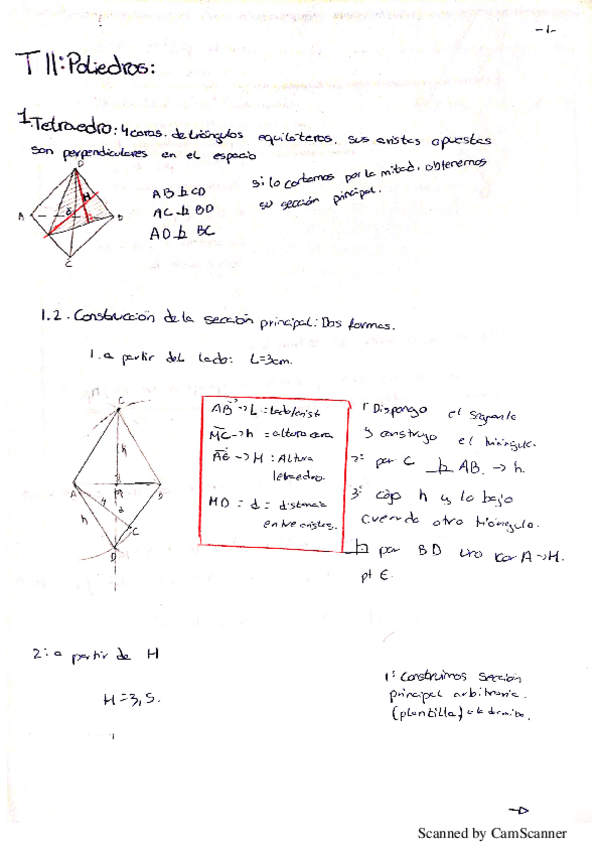 -1-
T II: Poliedros:
1. Tetraedro: 4 caras. de triángulos equiláteros. sus aristas opuestas
son perpendiculares en el espacio
si lo cortamos por la mitad, obtenemos
su sección principal.
D
H
A
B
C
AB ⊥ CD
AC ⊥ BD
AD ⊥ BC
1.2. Construcción de la sección principal: Dos formas.
1. a partir del lado: L=3cm.
C
h
A
M
B
H
d
h
D
AB → L = lado/arist
MC → h = altura cara
AE → H: Altura
tetraedro.
MD = d = distancia
entre aristas.
1º Dispongo el segmento
y construyo el triángulo.
2º: por C ⊥ AB. → h.
3º cojo h y lo bajo
creando otro triángulo.
⊥ por BD A → H.
pt E.
2: a partir de H
H = 3,5.
1º Construimos sección
principal arbitraria.
(plantilla)
Scanned by CamScanner